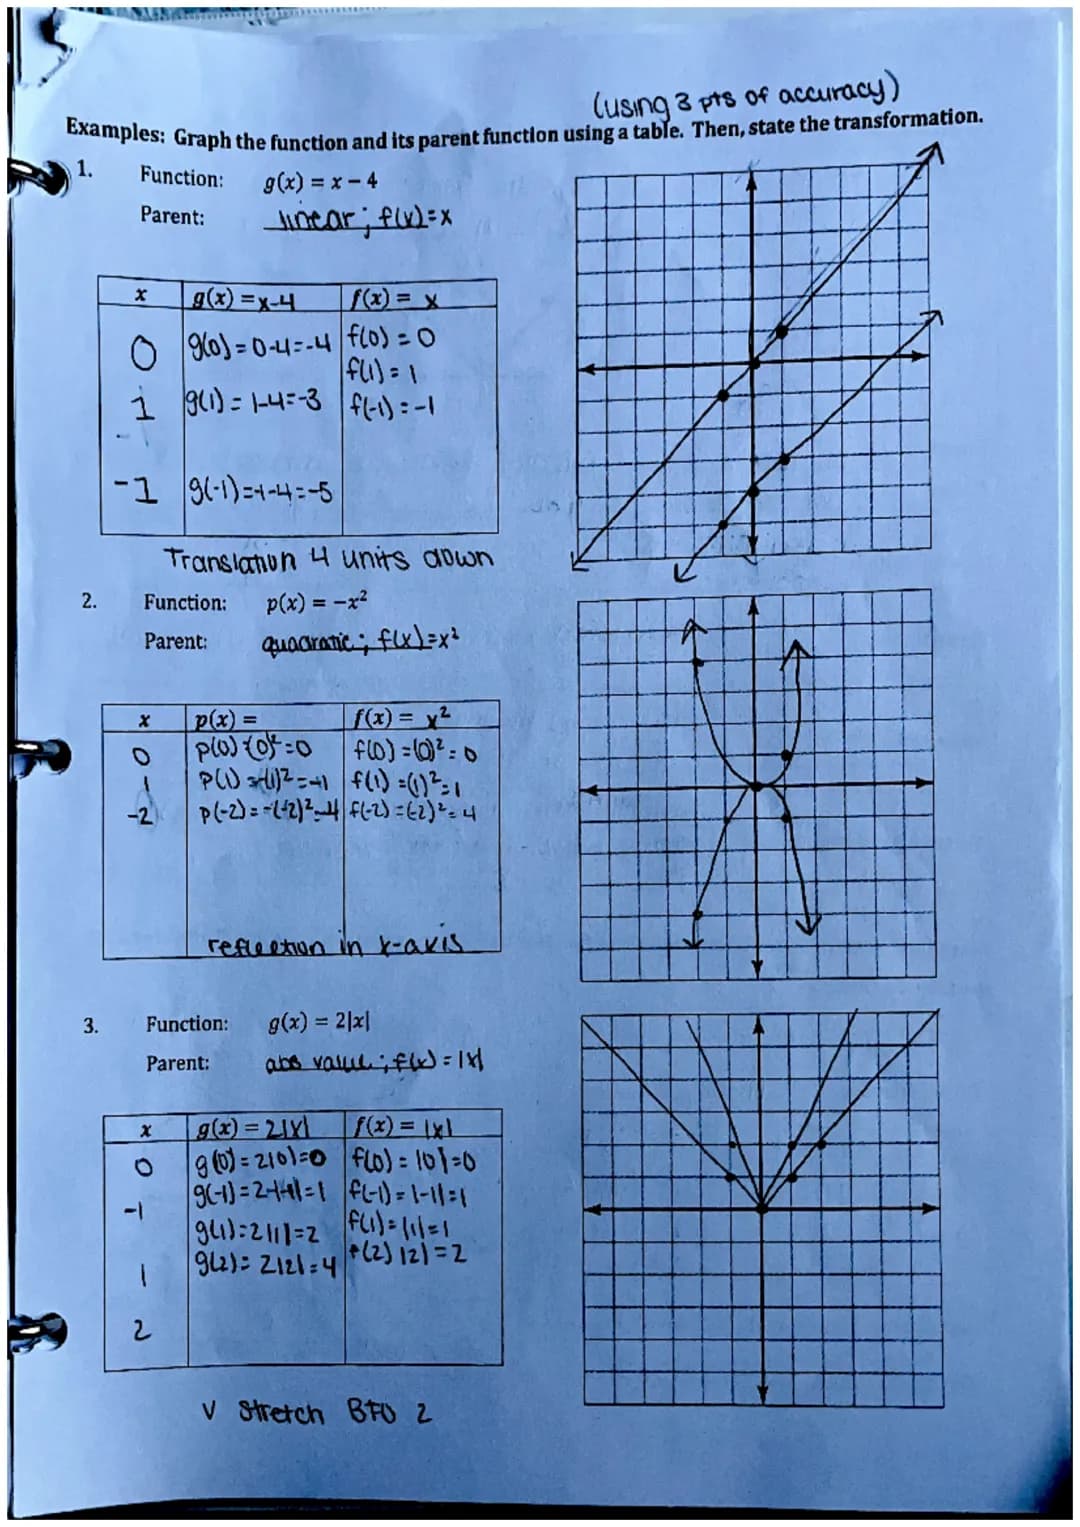 (using 3 pts of accuracy)
Examples: Graph the function and its parent function using a table. Then, state the transformation.
1. Function: g(x) = x − 4
Parent: linear; f(x)=x
x g(x) = x-4 f(x) = x
0 g(0)=0-4=-4 f(0) = 0
f(1) = 1
1 g(1) = 1-4=-3 f(-1) = -1
-1 g(-1)=-1-4=-5
Translation 4 units down
2. Function: p(x) = −x²
Parent: quadratic; f(x)=x²
x p(x) = f(x) = x²
0 p(0) -(0)²=0 f(0) =(0)²= 0
1 p(1) =-(1)²=-1 f(1) =(1)²=1
-2 p(-2)=-(-2)²=-4 f(-2)=(-2)²=4
reflection in x-axis
3. Function: g(x) = 2|x|
Parent: abs value; f(x) = |x|
x g(x) = 2|x| f(x) = |x|
0 g(0)=2|0|=0 f(0) = |0|=0
-1 g(-1)=2|-1|=1 f(-1)=|-1|=1
g(1)=2|1|=2 f(1)=|1|=1
1 g(2)= 2|2|=4 f(2) |2|=2
2
V stretch BFO 2